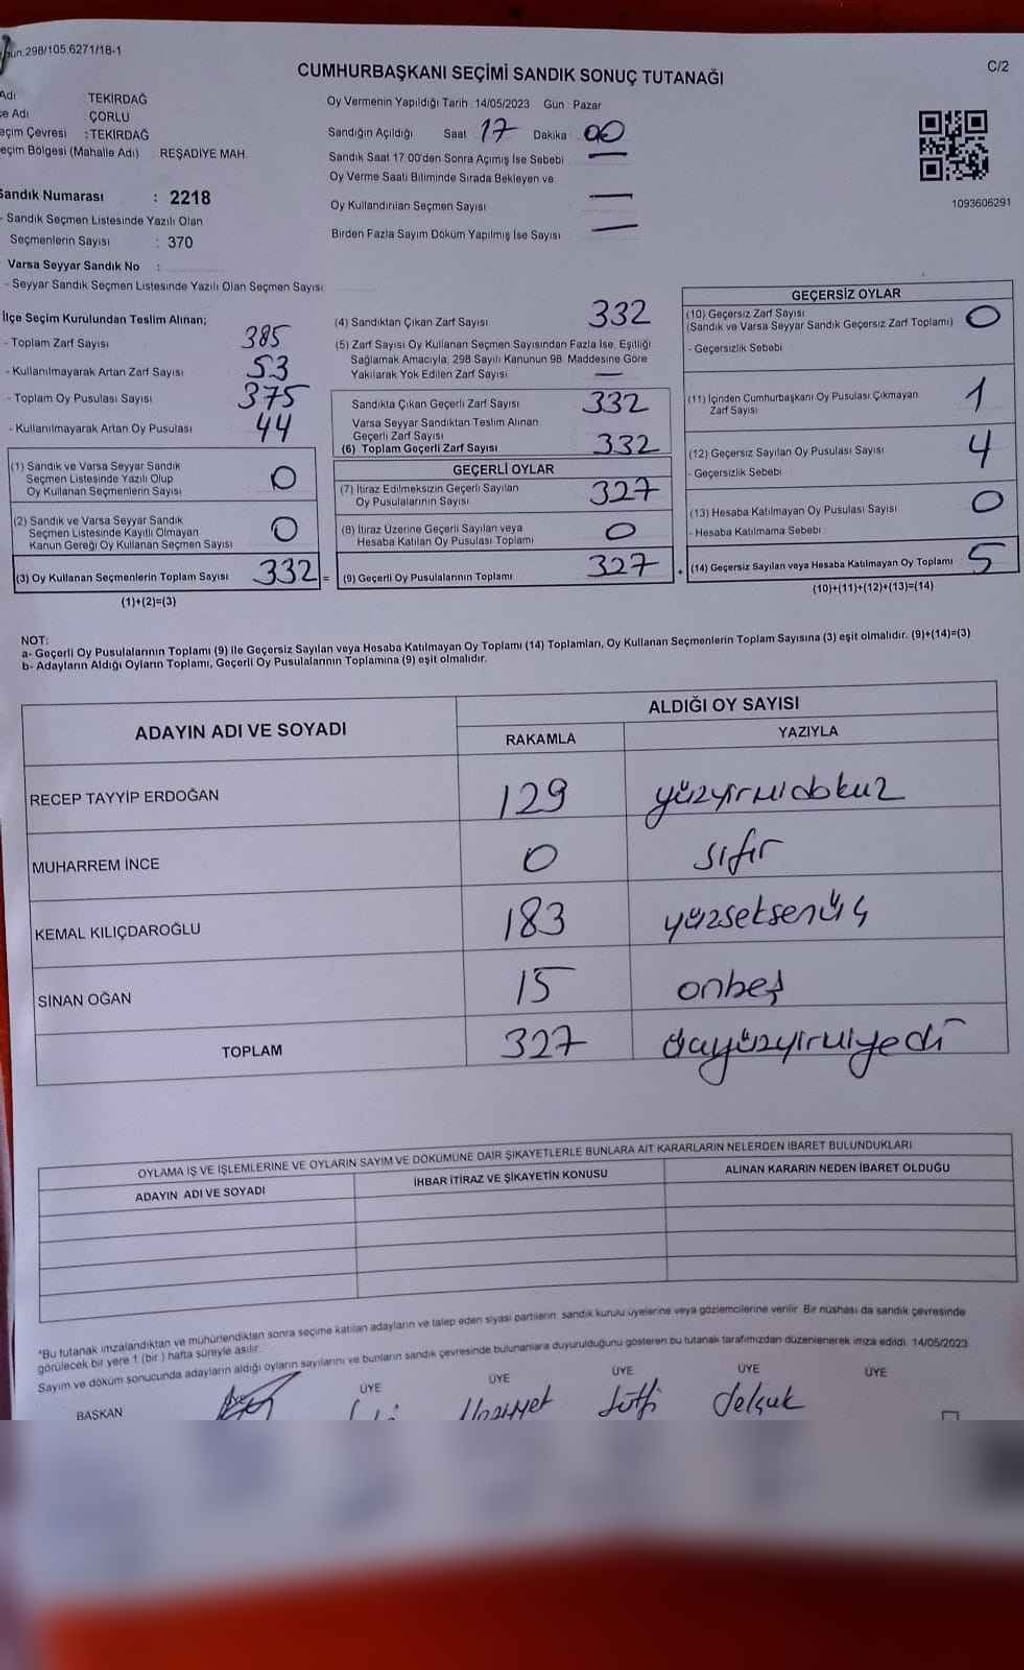 298/105.6271/18-1
C/2
CUMHURBAŞKANI SEÇİMİ SANDIK SONUÇ TUTANAĞI
Adı TEKİRDAĞ
Adı ÇORLU
Seçim Çevresi : TEKİRDAĞ
Seçim Bölgesi (Mahalle Adı) REŞADİYE MAH.
Sandık Numarası : 2218
- Sandık Seçmen Listesinde Yazılı Olan
Seçmenlerin Sayısı : 370
Varsa Seyyar Sandık No :
- Seyyar Sandık Seçmen Listesinde Yazılı Olan Seçmen Sayısı
Oy Vermenin Yapıldığı Tarih 14/05/2023 Gün : Pazar
Sandığın Açıldığı Saat 17 Dakika 00
Sandık Saat 17.00'den Sonra Açımış İse Sebebi —
Oy Verme Saati Bitiminde Sırada Bekleyen ve
Oy Kullandırılan Seçmen Sayısı —
Birden Fazla Sayım Döküm Yapılmış İse Sayısı —
1093606291
İlçe Seçim Kurulundan Teslim Alınan;
- Toplam Zarf Sayısı 385
- Kullanılmayarak Artan Zarf Sayısı 53
- Toplam Oy Pusulası Sayısı 375
- Kullanılmayarak Artan Oy Pusulası 44
(1) Sandık ve Varsa Seyyar Sandık
Seçmen Listesinde Yazılı Olup
Oy Kullanan Seçmenlerin Sayısı 0
(2) Sandık ve Varsa Seyyar Sandık
Seçmen Listesinde Kayıtlı Olmayan
Kanun Gereği Oy Kullanan Seçmen Sayısı 0
(3) Oy Kullanan Seçmenlerin Toplam Sayısı 332 =
(1)+(2)=(3)
(4) Sandıktan Çıkan Zarf Sayısı 332
(5) Zarf Sayısı Oy Kullanan Seçmen Sayısından Fazla İse, Eşitliği
Sağlamak Amacıyla, 298 Sayılı Kanunun 98. Maddesine Göre
Yakılarak Yok Edilen Zarf Sayısı —
Sandıkta Çıkan Geçerli Zarf Sayısı 332
Varsa Seyyar Sandıktan Teslim Alınan
Geçerli Zarf Sayısı
(6) Toplam Geçerli Zarf Sayısı 332
GEÇERLİ OYLAR
(7) İtiraz Edilmeksizin Geçerli Sayılan
Oy Pusulalarının Sayısı 327
(8) İtiraz Üzerine Geçerli Sayılan veya
Hesaba Katılan Oy Pusulası Toplamı 0
(9) Geçerli Oy Pusulalarının Toplamı 327 +
GEÇERSİZ OYLAR
(10) Geçersiz Zarf Sayısı
(Sandık ve Varsa Seyyar Sandık Geçersiz Zarf Toplamı) 0
- Geçersizlik Sebebi
(11) İçinden Cumhurbaşkanı Oy Pusulası Çıkmayan
Zarf Sayısı 1
(12) Geçersiz Sayılan Oy Pusulası Sayısı 4
- Geçersizlik Sebebi
(13) Hesaba Katılmayan Oy Pusulası Sayısı 0
- Hesaba Katılmama Sebebi :
(14) Geçersiz Sayılan veya Hesaba Katılmayan Oy Toplamı 5
(10)+(11)+(12)+(13)=(14)
NOT:
a- Geçerli Oy Pusulalarının Toplamı (9) ile Geçersiz Sayılan veya Hesaba Katılmayan Oy Toplamı (14) Toplamları, Oy Kullanan Seçmenlerin Toplam Sayısına (3) eşit olmalıdır. (9)+(14)=(3)
b- Adayların Aldığı Oyların Toplamı, Geçerli Oy Pusulalarının Toplamına (9) eşit olmalıdır.
ADAYIN ADI VE SOYADI ALDIĞI OY SAYISI
RAKAMLA YAZIYLA
RECEP TAYYİP ERDOĞAN 129 yüzyirmidokuz
MUHARREM İNCE 0 sıfır
KEMAL KILIÇDAROĞLU 183 yüzseksenüç
SİNAN OĞAN 15 onbeş
TOPLAM 327 üçyüzyirmiyedi
OYLAMA İŞ VE İŞLEMLERİNE VE OYLARIN SAYIM VE DÖKÜMÜNE DAİR ŞİKAYETLERLE BUNLARA AİT KARARLARIN NELERDEN İBARET BULUNDUKLARI
ADAYIN ADI VE SOYADI İHBAR İTİRAZ VE ŞİKAYETİN KONUSU ALINAN KARARIN NEDEN İBARET OLDUĞU
*Bu tutanak imzalandıktan ve mühürlendikten sonra seçime katılan adayların ve talep eden siyasi partilerin sandık kurulu üyelerine veya gözlemcilerine verilir. Bir nüshası da sandık çevresinde
görülecek bir yere 1 (bir) hafta süreyle asılır.
Sayım ve döküm sonucunda adayların aldığı oyların sayılarını ve bunların sandık çevresinde bulunanlara duyurulduğunu gösteren bu tutanak tarafımızdan düzenlenerek imza edildi. 14/05/2023
BAŞKAN ÜYE ÜYE ÜYE ÜYE ÜYE
Lütfi Selçuk